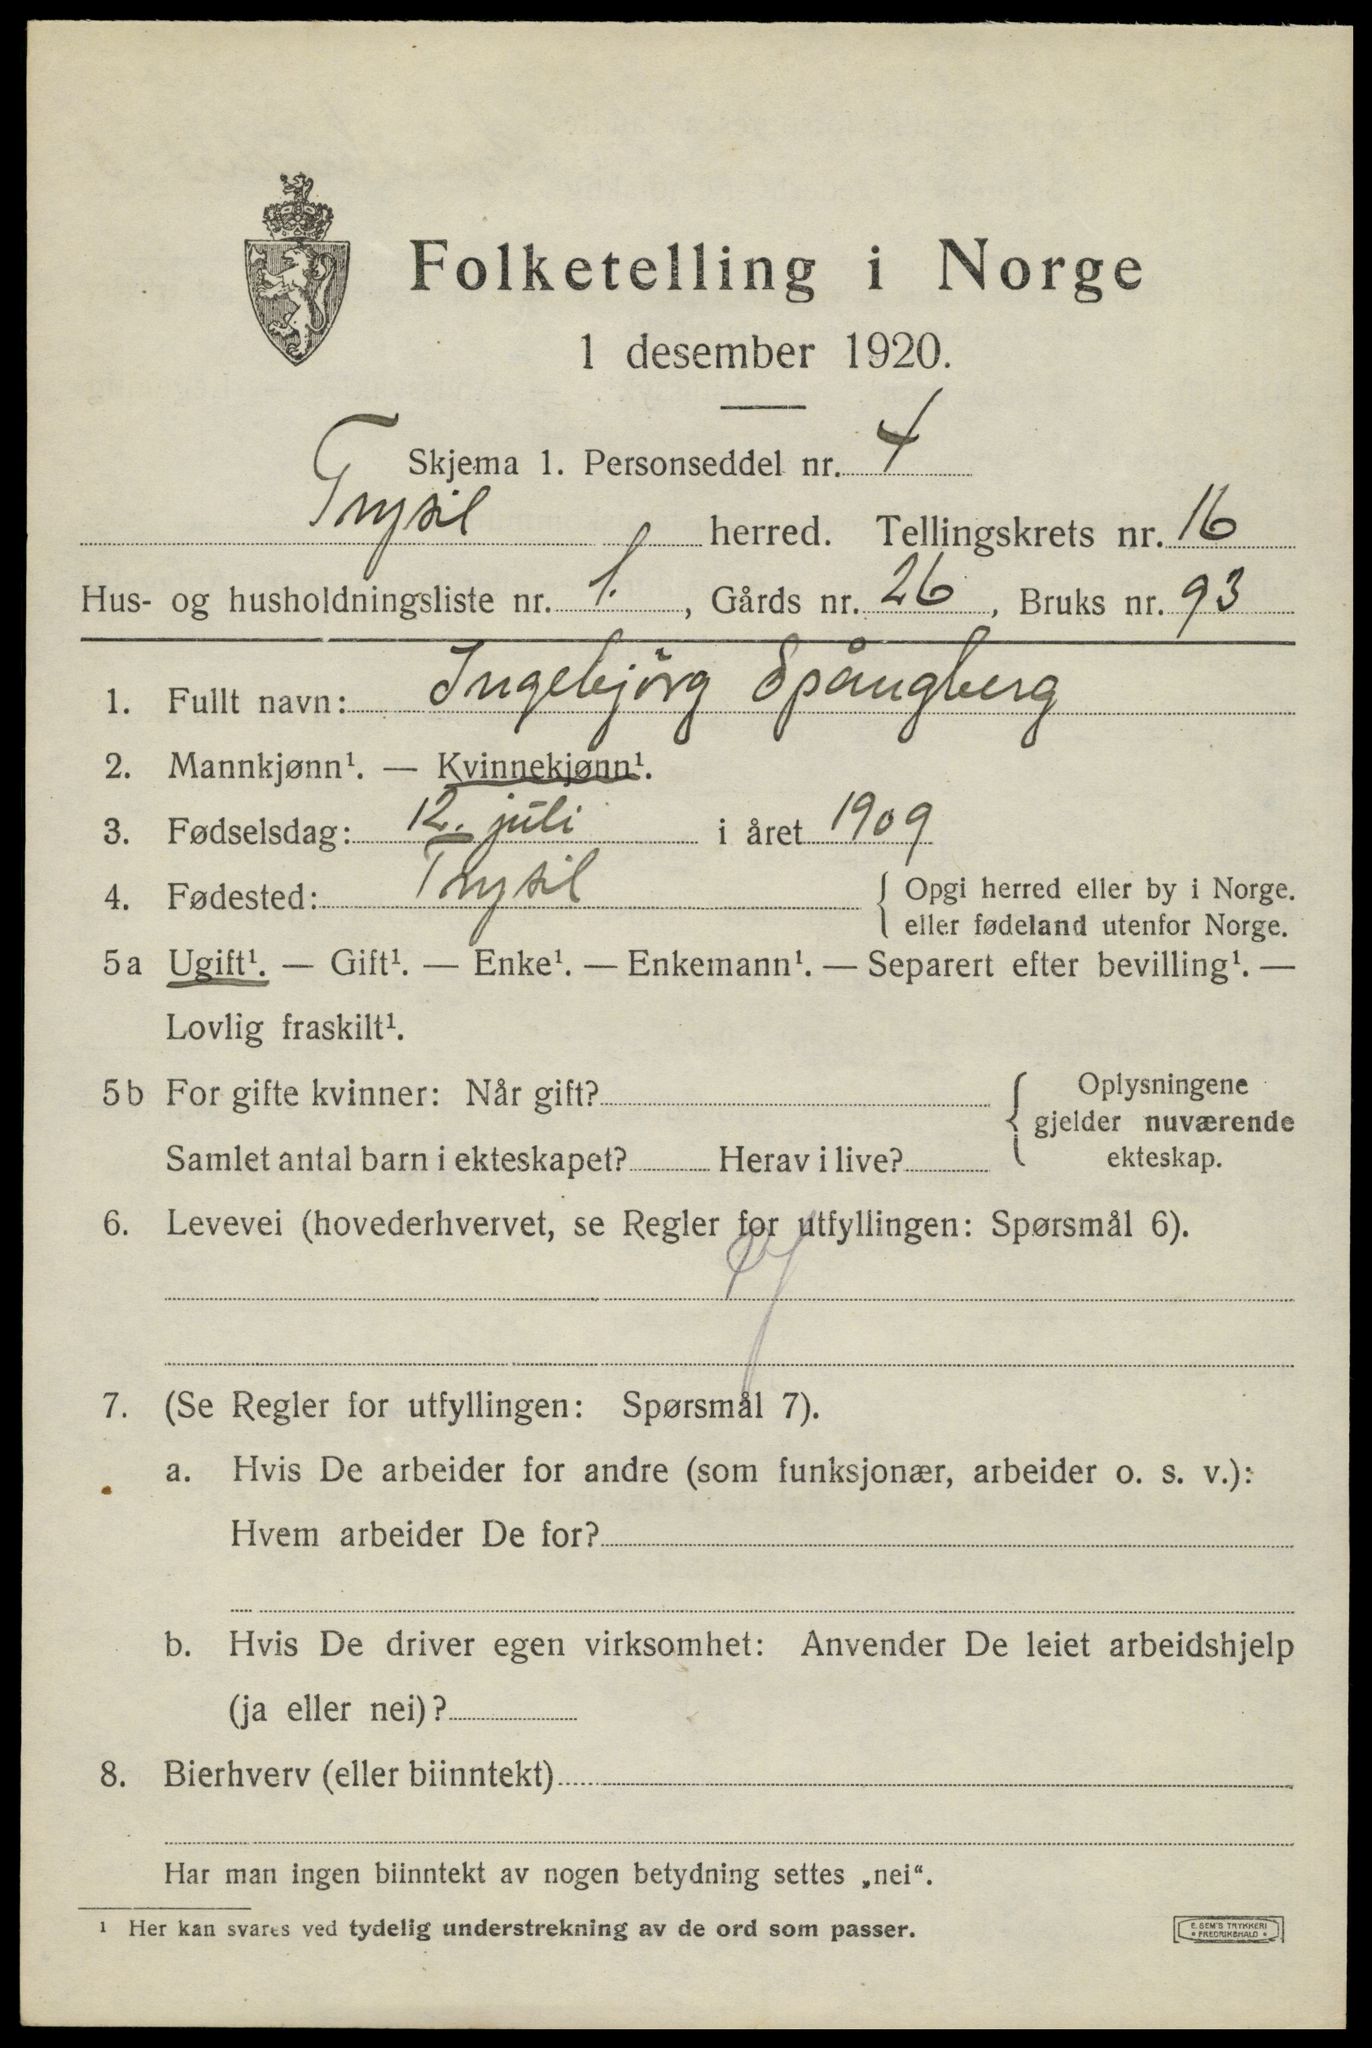 Folketelling i Norge
1 desember 1920.
Skjema 1. Personseddel nr. 4
Trysil herred. Tellingskrets nr. 16
Hus- og husholdningsliste nr. 1. , Gårds nr. 26 , Bruks nr. 93
1. Fullt navn: Ingebjörg Spångberg
2. Mannkjønn¹. — Kvinnekjønn¹.
3. Fødselsdag: 12. juli i året 1909
4. Fødested: Trysil { Opgi herred eller by i Norge.
eller fødeland utenfor Norge.
5a Ugift¹. — Gift¹. — Enke¹. — Enkemann¹. — Separert efter bevilling¹. —
Lovlig fraskilt¹.
5b For gifte kvinner: Når gift? { Oplysningene
gjelder nuværende
Samlet antal barn i ekteskapet? Herav i live? ekteskap.
6. Levevei (hovederhvervet, se Regler for utfyllingen: Spørsmål 6).
7. (Se Regler for utfyllingen: Spørsmål 7).
a. Hvis De arbeider for andre (som funksjonær, arbeider o. s. v.):
Hvem arbeider De for?
b. Hvis De driver egen virksomhet: Anvender De leiet arbeidshjelp
(ja eller nei)?
8. Bierhverv (eller biinntekt)
Har man ingen biinntekt av nogen betydning settes „nei“.
¹ Her kan svares ved tydelig understrekning av de ord som passer.
E. SEM'S TRYKKERI
• FREDRIKSHALD •